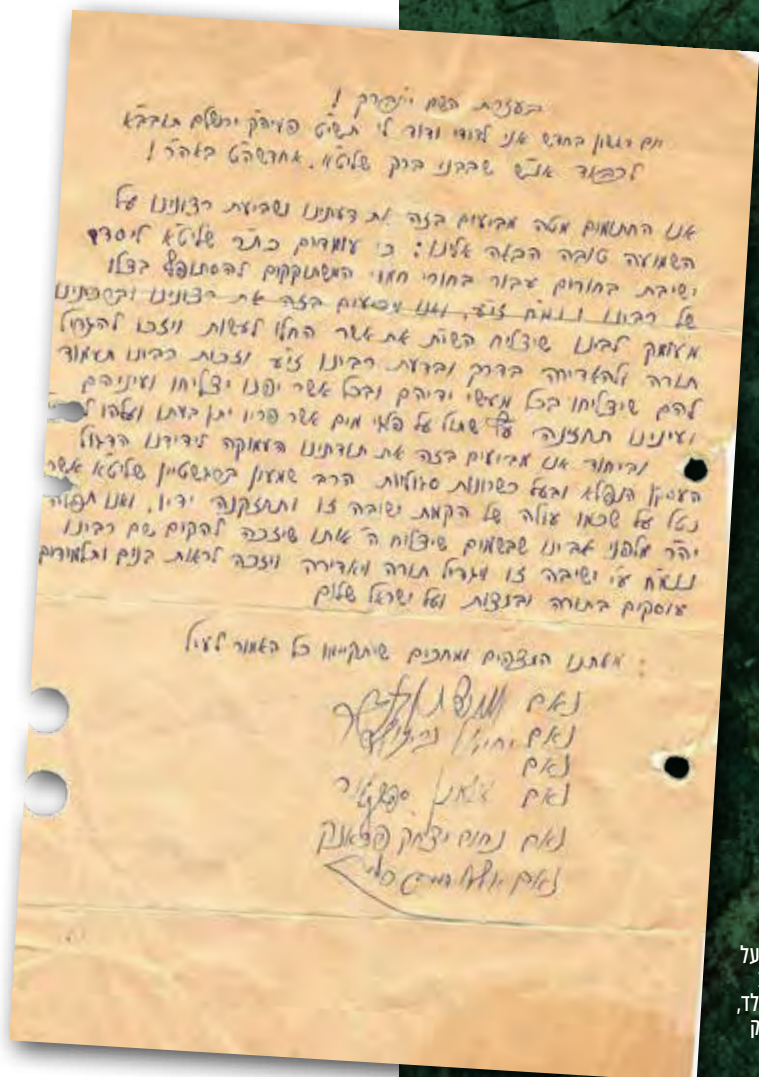 בעזרת השם יתברך !
יום ראשון בחדש אני לדודי ודודי לי תשי"ט פעיה"ק ירושלם תובב"א
לכבוד אנ"ש שבבני ברק שליט"א. אחדשה"ט באה"ר !
אנו החתומים מטה מביעים בזה את דעתינו ושביעת רצונינו על
השמועה טובה הבאה אלינו : כי עומדים כת"ר שליט"א ליסד
ישיבת בחורים עבור בחורי חמד המשתוקקים להסתופף בצלו
של רבינו ננמ"ח זיע"א, ואנו מביעים בזה את רצונינו וברכתינו
מעומק לבינו שיצליח השי"ת את אשר החלו לעשות ויזכו להגדיל
תורה ולהאדירה בדרך ובדעת רבינו זיע"א וזכות רבינו תעמוד
להם שיצליחו בכל מעשי ידיהם ובכל אשר יפנו יצליחו ועיניהם
ועינינו תחזנה עץ שתול על פלגי מים אשר פריו יתן בעתו ועלהו
וביחוד אנו מביעים בזה את תודתינו העמוקה לידידנו הדגול
העסקן הנפלא ובעל כשרונות סגוליות הרב שמעון בערגשטיין שליט"א אשר
נטל על שכמו עולה של הקמת ישיבה זו ותחזקנה ידיו, ואנו תפוה
יה"ר מלפני אבינו שבשמים שיצליח ה' אותו שיזכה להקים שם רבינו
ננמ"ח ע"י ישיבה זו מגדיל תורה ומאדירה ויזכה לראות בנים ותלמידים
עוסקים בתורה ובמצות ועל ישראל שלום
מאתנו המצפים ומחכים שיתקיימו כל האמור לעיל :
נאם
נאם
נאם
נאם ספקטור
נאם נחום יצחק פראנק
נאם
על
לד,
ק